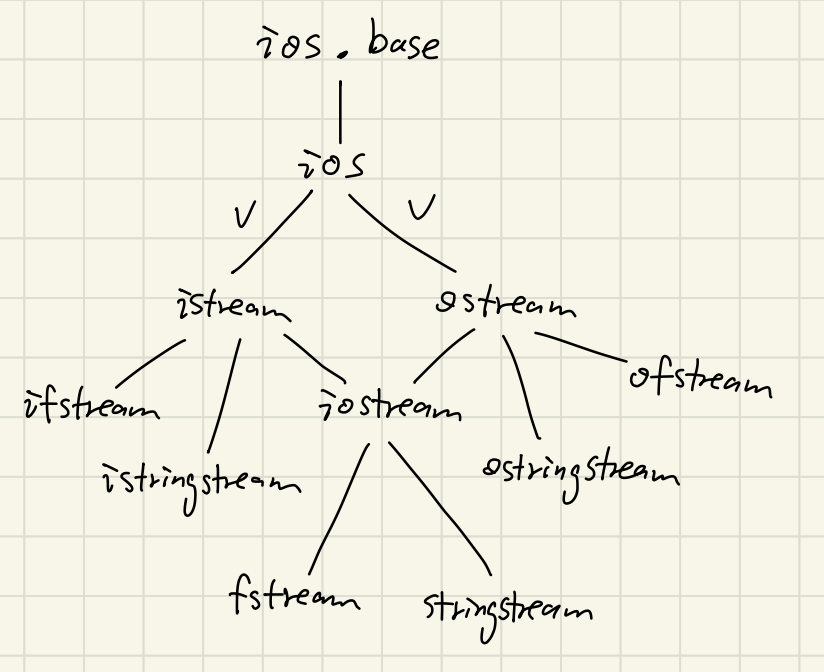 ios.base
ios
V V
istream ostream
ifstream iostream ofstream
istringstream ostringstream
fstream stringstream